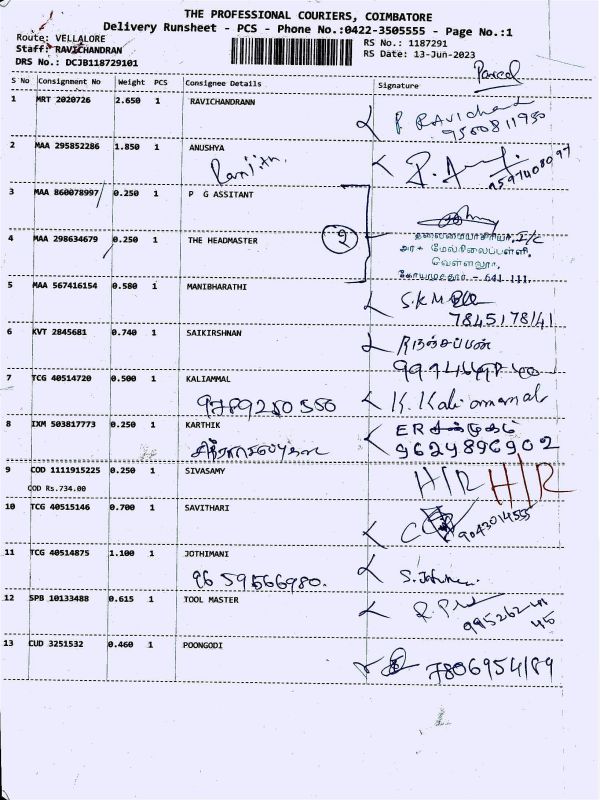 THE PROFESSIONAL COURIERS, COIMBATORE
Delivery Runsheet - PCS - Phone No.:0422-3505555 - Page No.:1
Route: VELLALORE
RS No.: 1187291
Staff: RAVICHANDRAN
RS Date: 13-Jun-2023
DRS No.: DCJB118729101
Parcel
S No Consignment No Weight PCS Consignee Details Signature
1 MRT 2020726 2.650 1 RAVICHANDRANN
2 MAA 295852286 1.850 1 ANUSHYA
Ranjith.
3 MAA 860078997 0.250 1 P G ASSITANT
தலைமையாசிரியர், I/c
4 MAA 298634679 0.250 1 THE HEADMASTER
2
அரசு மேல்நிலைப்பள்ளி,
வெள்ளலூர்,
கோயமுத்தூர் - 641 111.
5 MAA 567416154 0.580 1 MANIBHARATHI
7845178141
6 KVT 2845681 0.740 1 SAIKIRSHNAN
7 TCG 40514720 0.500 1 KALIAMMAL
9789250550 K. Kaliammal
8 IXM 503817773 0.250 1 KARTHIK
9629896902
9 COD 1111915225 0.250 1 SIVASAMY
H/R H/R
COD Rs.734.00
10 TCG 40515146 0.700 1 SAVITHARI
9043014555
11 TCG 40514875 1.100 1 JOTHIMANI
9659566980.
12 SPB 10133488 0.615 1 TOOL MASTER
13 CUD 3251532 0.460 1 POONGODI
7806954189